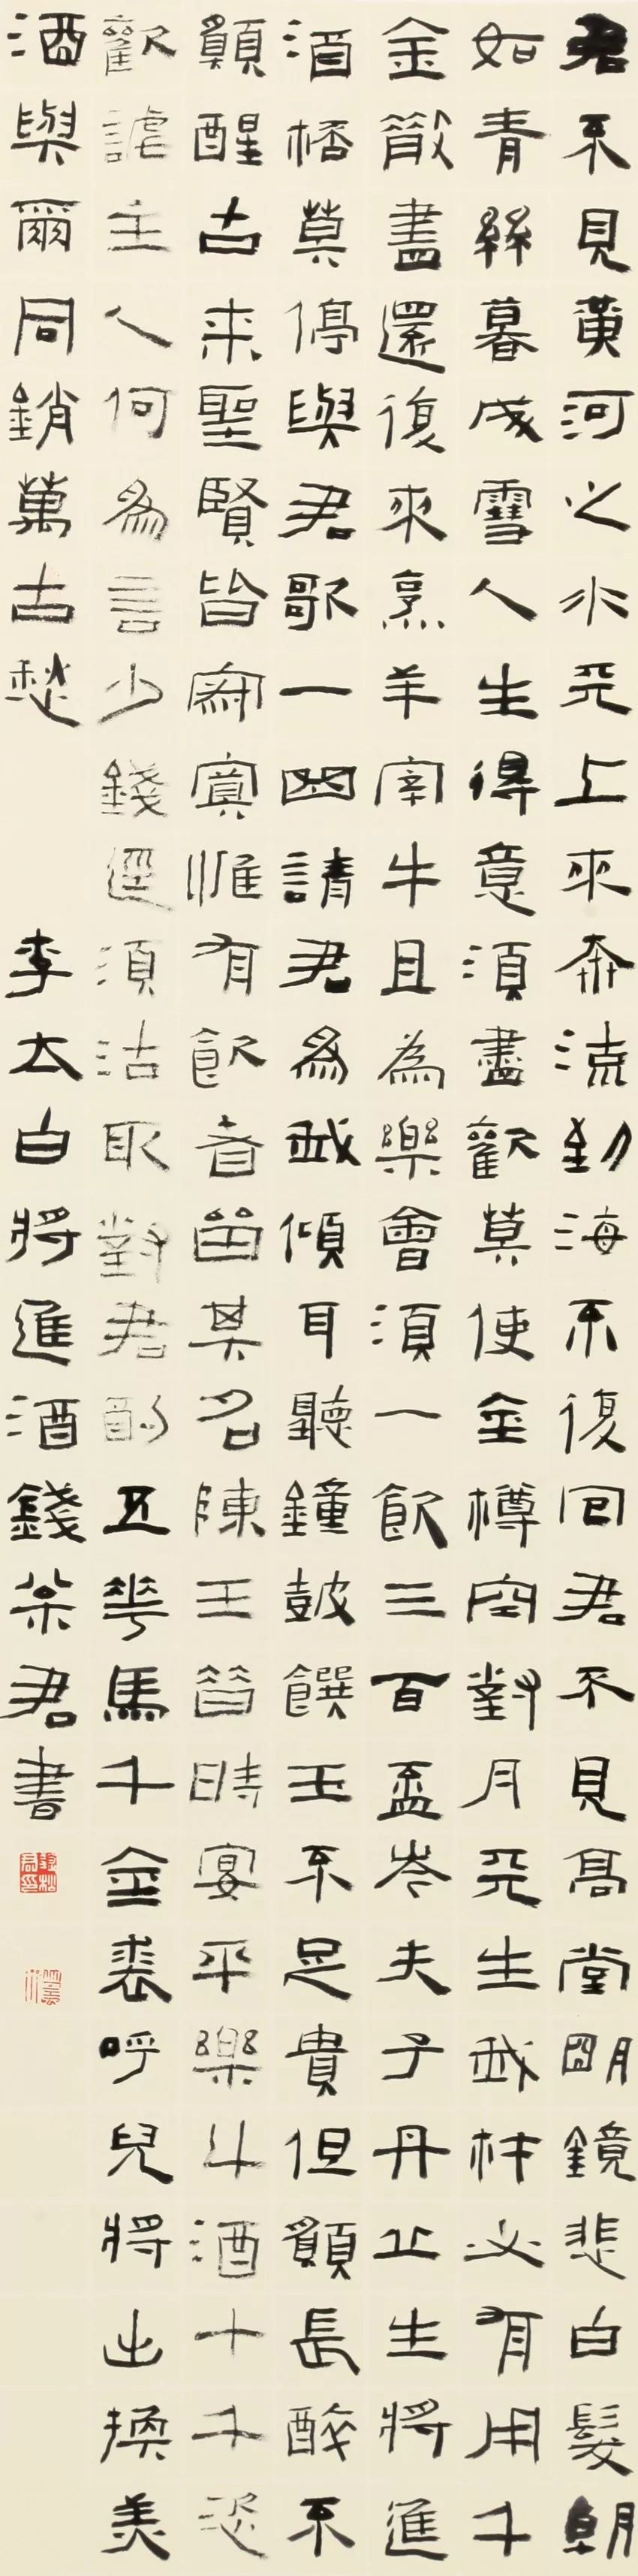 君不見黃河之水天上來奔流到海不復回君不見高堂明鏡悲白髮朝
如青絲暮成雪人生得意須盡歡莫使金樽空對月天生我材必有用千
金散盡還復來烹羊宰牛且為樂會須一飲三百盃岑夫子丹丘生將進
酒桮莫停與君歌一曲請君爲我傾耳聽鐘鼓饌玉不足貴但願長醉不
願醒古來聖賢皆寂寞惟有飲者留其名陳王昔時宴平樂斗酒十千恣
歡謔主人何爲言少錢逕須沽取對君酌五花馬千金裘呼兒將出換美
酒與爾同銷萬古愁 李太白將進酒錢枀君書